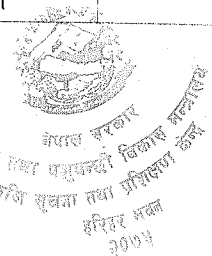 नेपाल सरकार
तथा पशुपन्छी विकास मन्त्रालय
सूचना तथा प्रशिक्षण केन्द्र
हरिहर भवन
२०७५